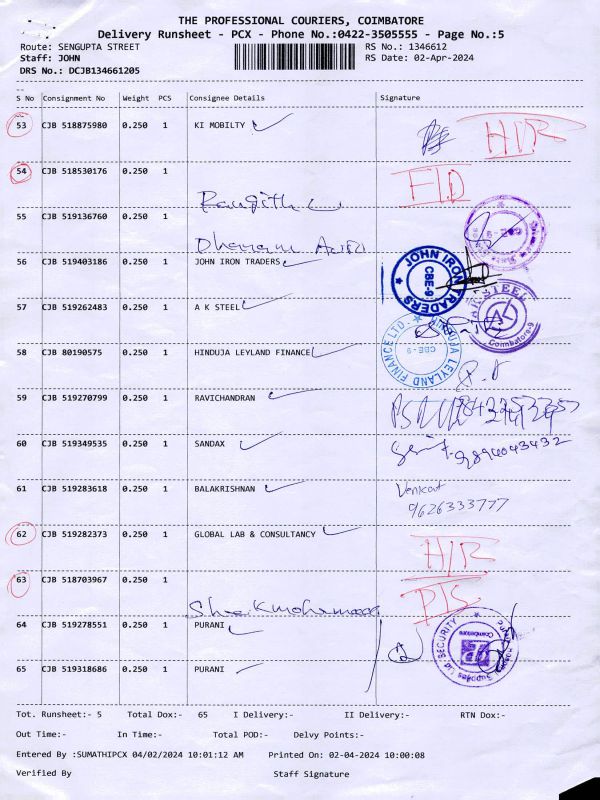 THE PROFESSIONAL COURIERS, COIMBATORE
Delivery Runsheet - PCX - Phone No.:0422-3505555 - Page No.:5
Route: SENGUPTA STREET RS No.: 1346612
Staff: JOHN RS Date: 02-Apr-2024
DRS No.: DCJB134661205
S No Consignment No Weight PCS Consignee Details Signature
53 CJB 518875980 0.250 1 KI MOBILTY
54 CJB 518530176 0.250 1
55 CJB 519136760 0.250 1
56 CJB 519403186 0.250 1 JOHN IRON TRADERS JOHN IRON TRADERS CBE-9
57 CJB 519262483 0.250 1 A K STEEL STEEL Coimbatore-9
58 CJB 80190575 0.250 1 HINDUJA LEYLAND FINANCE HINDUJA LEYLAND FINANCE LTD. CBE-9
59 CJB 519270799 0.250 1 RAVICHANDRAN
60 CJB 519349535 0.250 1 SANDAX 9894043432
61 CJB 519283618 0.250 1 BALAKRISHNAN Venkat
9626333777
62 CJB 519282373 0.250 1 GLOBAL LAB & CONSULTANCY
63 CJB 518703967 0.250 1
64 CJB 519278551 0.250 1 PURANI SECURITY Coimbatore
65 CJB 519318686 0.250 1 PURANI
Tot. Runsheet:- 5 Total Dox:- 65 I Delivery:- II Delivery:- RTN Dox:-
Out Time:- In Time:- Total POD:- Delvy Points:-
Entered By :SUMATHIPCX 04/02/2024 10:01:12 AM Printed On: 02-04-2024 10:00:08
Verified By Staff Signature